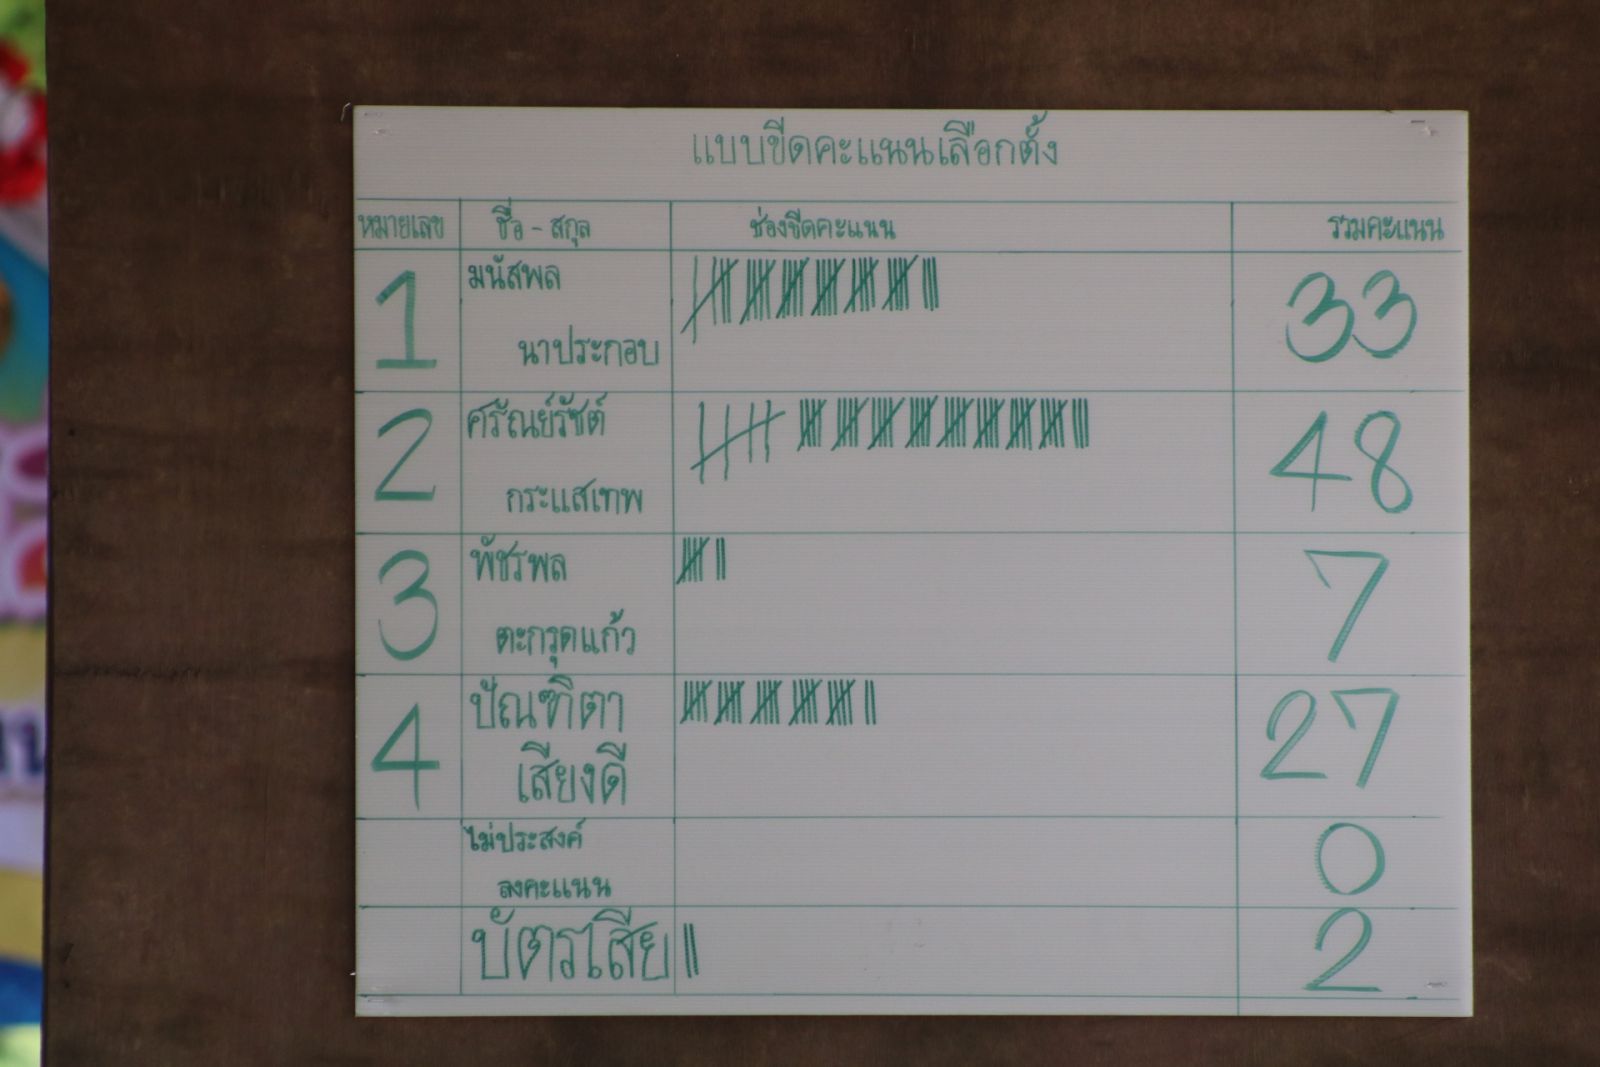 แบบขีดคะแนนเลือกตั้ง
หมายเลข ชื่อ - สกุล ช่องขีดคะแนน รวมคะแนน
1 มนัสพล 33
นาประกอบ
2 ศรัณย์รัชต์ 48
กระแสเทพ
3 พัชรพล 7
ตะกรุดแก้ว
4 ปัณฑิตา 27
เสียงดี
ไม่ประสงค์ 0
ลงคะแนน
บัตรเสีย 2